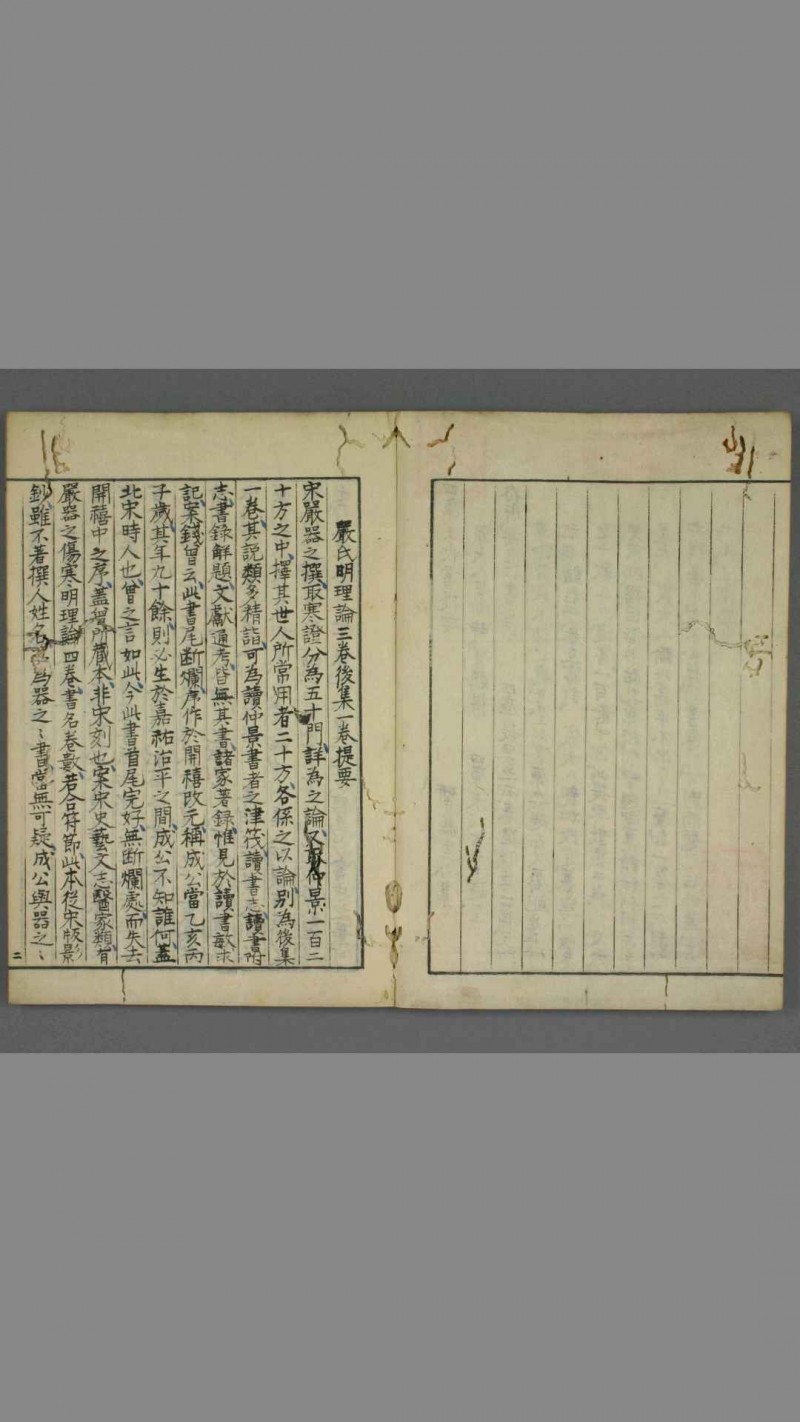 嚴氏明理論三卷後集一卷提要
宋嚴器之撰取寒證分為五十門詳為之論又取仲景一百二
十方之中擇其世人所常用者二十方各係之以論別為後集
一卷其說類多精詣可為讀仲景書者之津筏讀書志讀書附
志書錄解題文獻通考皆無其書諸家著錄惟見於讀書敏求
記案錢曾云此書尾斷爛序作於開禧改元稱成公當乙亥丙
子歲其年九十餘則必生於嘉祐治平之間成公不知誰何蓋
北宋時人也曾之言如此今此書首尾完好無斷爛處而失去
開禧中之序蓋曾所藏本非宋刻也案宋史藝文志醫家類有
嚴器之傷寒明理論四卷書名卷數若合符節此本從宋版影
鈔雖不著撰人姓名為器之〻書當無可疑成公與器之〻
二